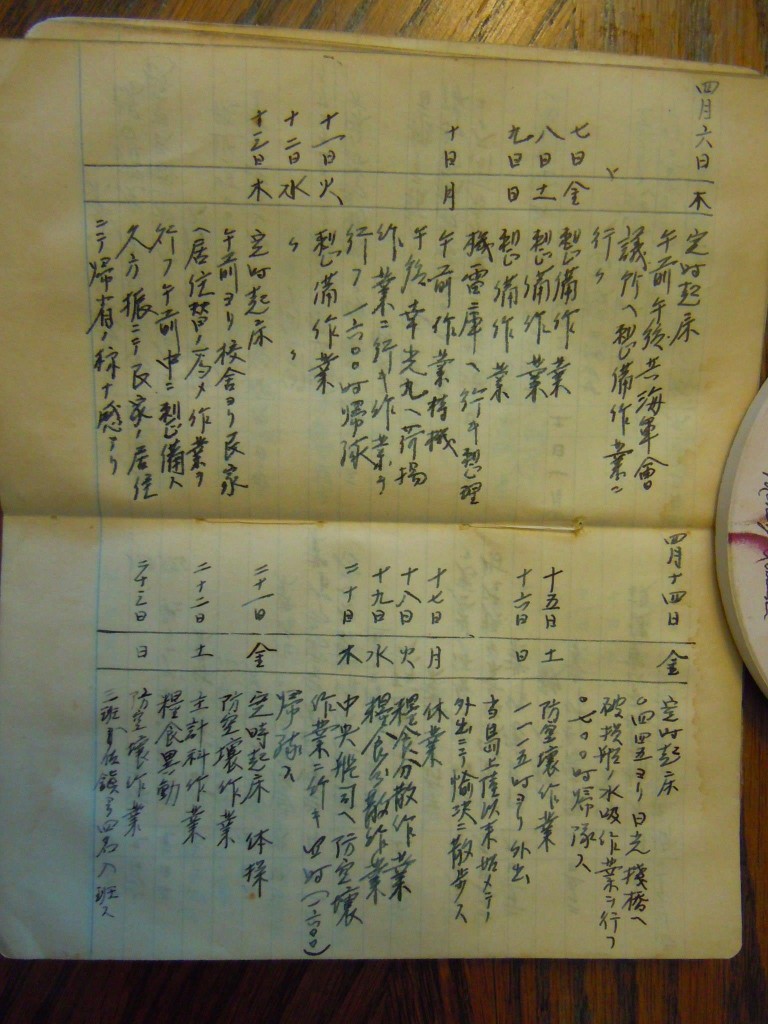 四月六日 木 定時起床
午前午後共海軍會
議所ヘ整備作業ニ
行ク
七日 金 整備作業
八日 土 整備作業
九日 日 整備作業
機雷庫ヘ行キ整理
十日 月 午前作業待機
午後幸光丸ヘ荷揚
作業ニ行キ作業ヲ
行フ 一六〇〇時帰隊
十一日 火 整備作業
十二日 水 〃 〃
十三日 木 定時起床
午前ヨリ校舎ヨリ民家
ヘ居住替ノ為メ作業ヲ
行フ午前中ニ整備ス
久方振ニテ民家ノ居住
ニテ帰省ノ様ナ感アリ
四月十四日 金 定時起床
〇四四五ヨリ日光桟橋ヘ
破損船ノ水吸作業ヲ行フ
〇七〇〇時帰隊ス
十五日 土 防空壕作業
十六日 日 一一一五時ヨリ外出
当島上陸以来始メテノ
外出ニテ愉快ニ散歩ス
十七日 月 休業
十八日 火 糧食分散作業
十九日 水 糧食分散作業
二十日 木 中央船司ヘ防空壕
作業ニ行キ 四時(一六〇〇)
帰隊ス
二十一日 金 定時起床 体操
防空壕作業
二十二日 土 主計科作業
糧食異動
二十三日 日 防空壕作業
三班ヘ佐鎮ヨリ四名入班ス